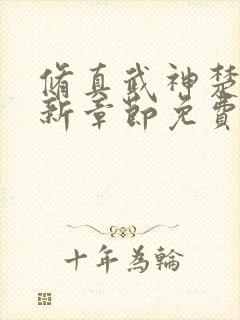 脩真武神楚
新章節免費
十年為輪